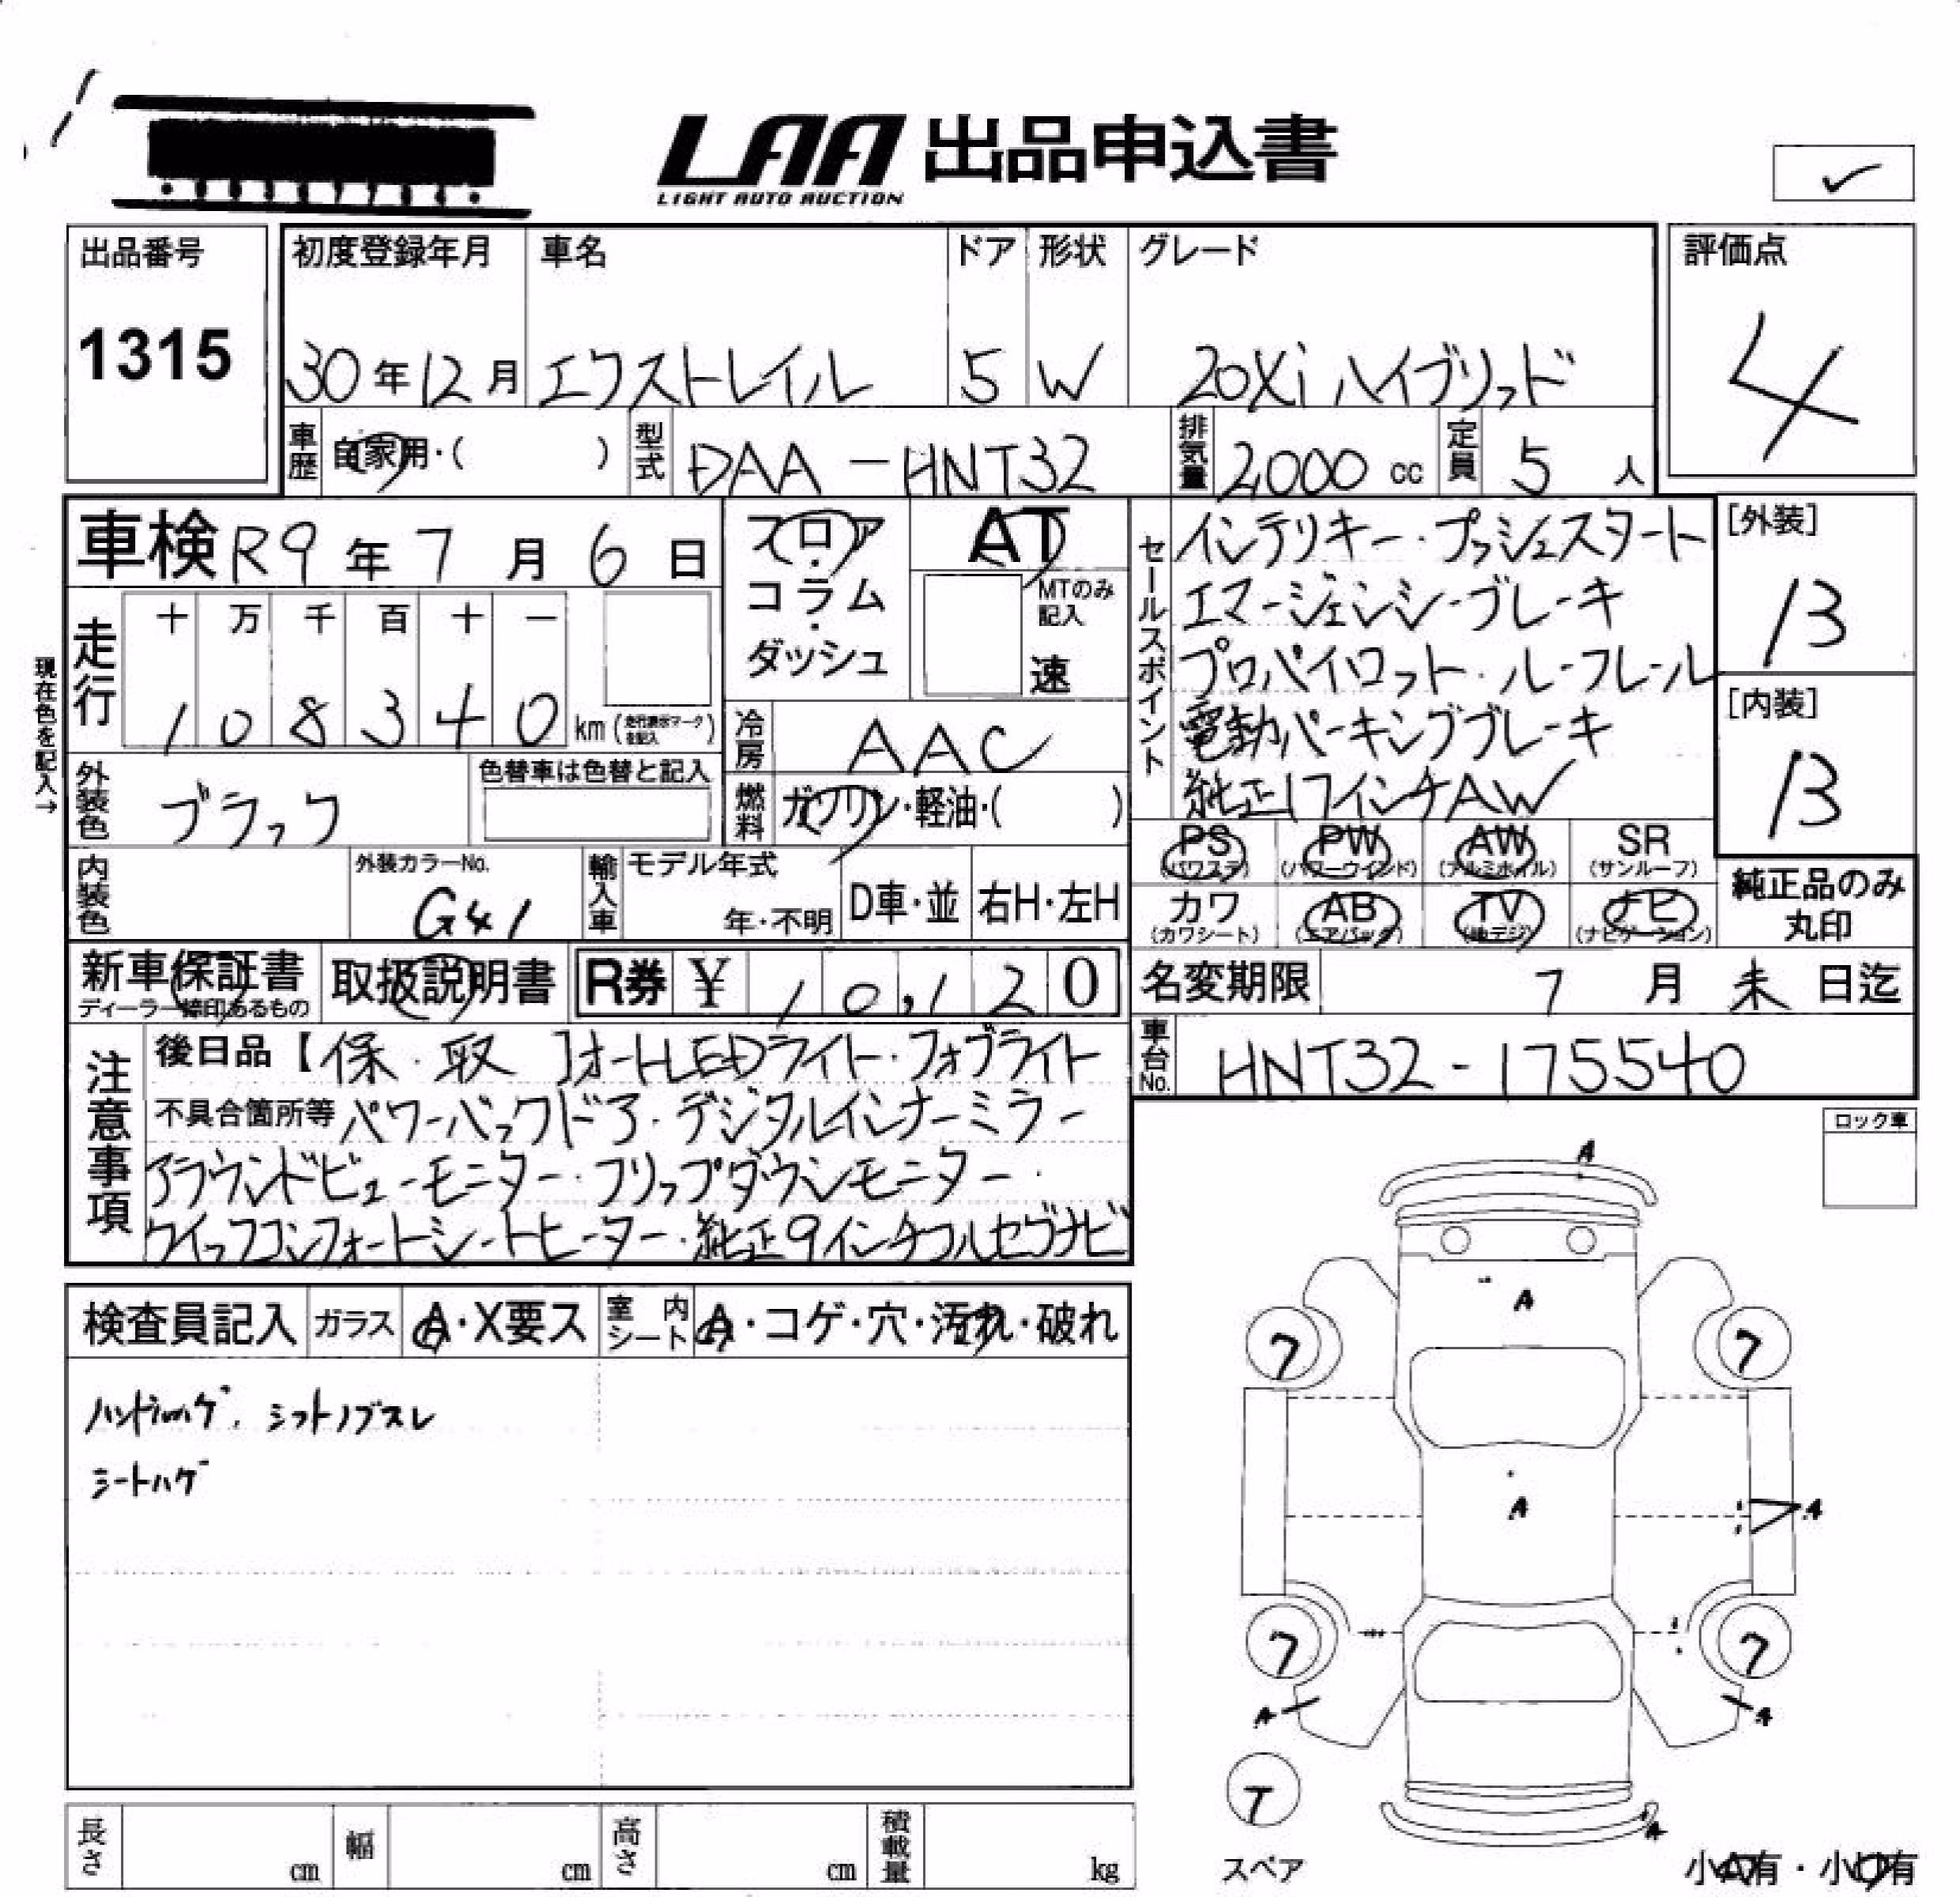 LAA 出品申込書
LIGHT AUTO AUCTION
✓
出品番号 初度登録年月 車名 ドア 形状 グレード 評価点
1315 30年12月 エクストレイル 5 W 20Xi ハイブリッド 4
車歴 自家用・( ) 型式 DAA-HNT32 排気量 2,000 cc 定員 5 人
車検 R9年 7月 6日
フロア・コラム・ダッシュ
AT
MTのみ記入
速
セールスポイント
インテリキー・プッシュスタート
エマージェンシーブレーキ
プロパイロット・ルーフレール
電動パーキングブレーキ
純正17インチAW
[外装]
B
[内装]
B
現在色を記入→
走行 十 万 千 百 十 一
1 0 8 3 4 0 km (走行表示マークを記入)
冷房 AAC
外装色 ブラック 色替車は色替と記入
燃料 ガソリン・軽油・( )
PS (パワステ) PW (パワーウインド) AW (アルミホイル) SR (サンルーフ)
カワ (カワシート) AB (エアバック) TV (地デジ) ナビ (ナビゲーション)
純正品のみ丸印
内装色 外装カラーNo. G41 輸入車 モデル年式 年・不明 D車・並 右H・左H
新車保証書 ディーラー捺印あるもの 取扱説明書 R券 ¥ 10,120
名変期限 7月 末 日迄
車台No. HNT32-175540
注意事項
後日品【保・取 】オートLEDライト・フォグライト
不具合箇所等 パワーバックドア・デジタルインナーミラー
アラウンドビューモニター・フリップダウンモニター・
クイックコンフォートシートヒーター・純正9インチフルセグナビ
ロック車
検査員記入 ガラス A・X要ス 室内シート A・コゲ・穴・汚れ・破れ
ハンドルハゲ、シフトノブスレ
シートハゲ
A
A
7 7
A
A
7 7
A A
T
スペア
A
小A有・小U有
長さ cm 幅 cm 高さ cm 積載量 kg